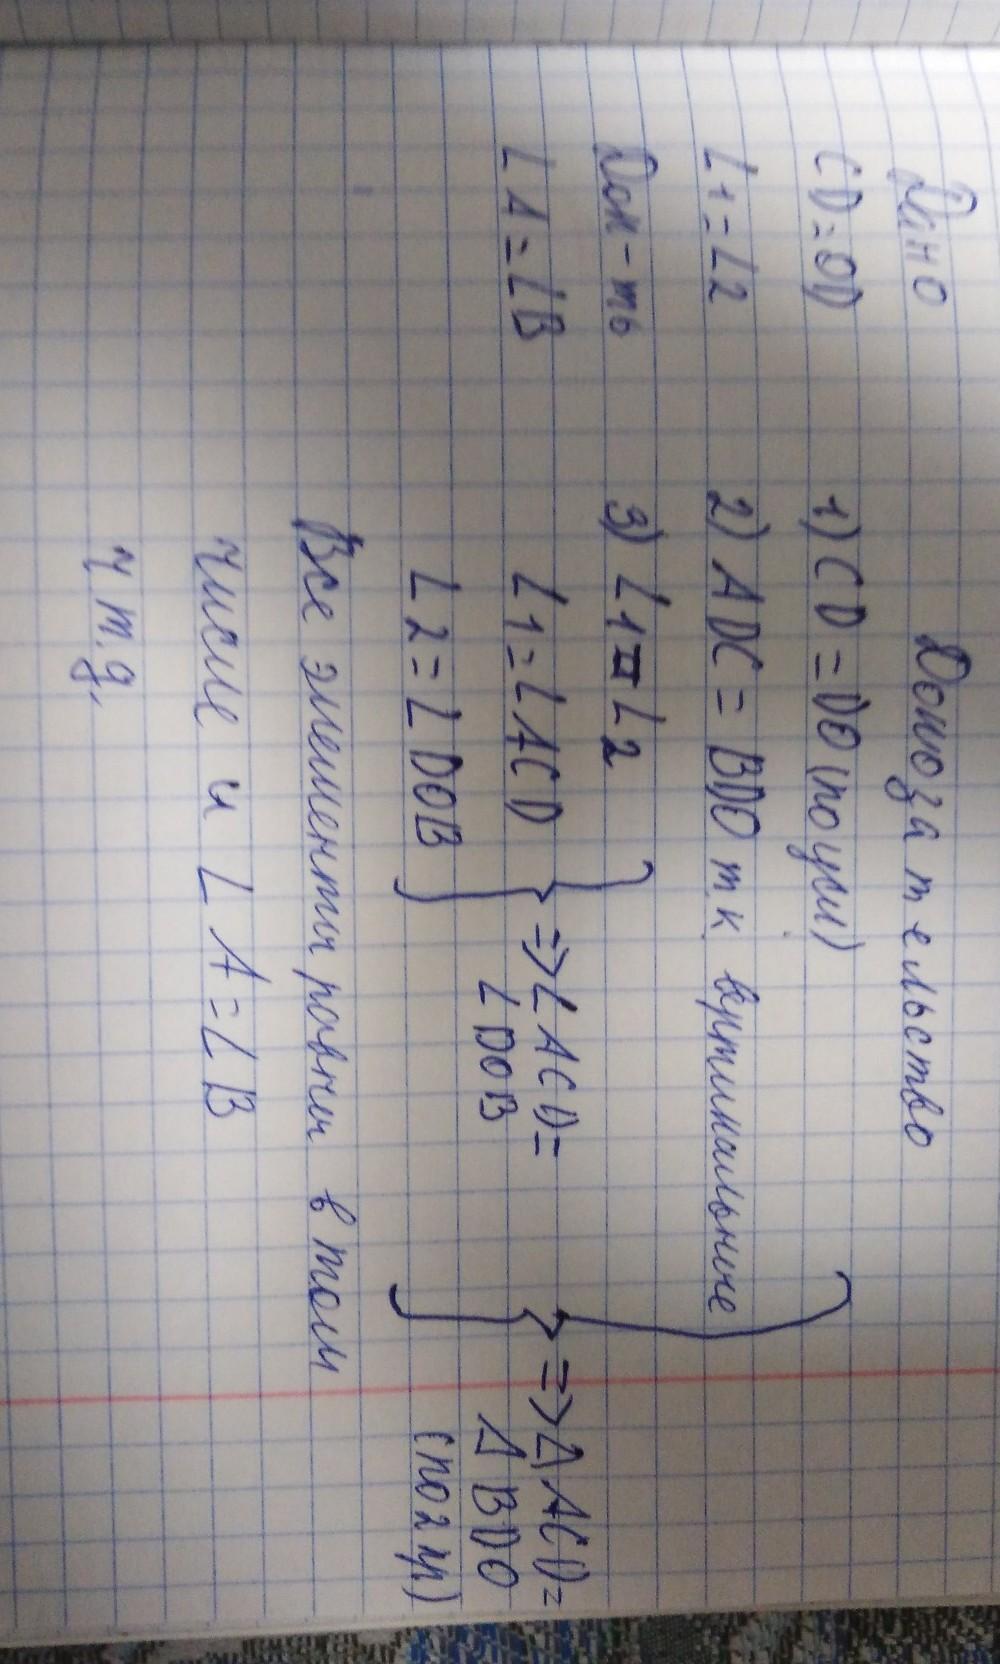 Дано
CD=OD
∠1=∠2
Док-ть
∠A=∠B
Доказательство
1) CD=DO (по усл)
2) ADC = BDO т к вертикальные
3) ∠1=∠2
∠1=∠ACD
∠2=∠DOB
=>∠ACD=
∠DOB
=>ΔACD=
ΔBDO
(по 2 пр)
Все элементы равны в том
числе и ∠A=∠B
ч т.д,